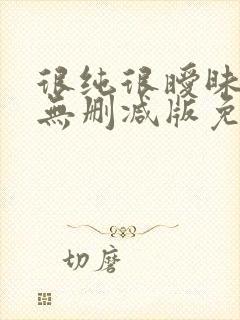 很纯很暧昧
無删减版免
切磨